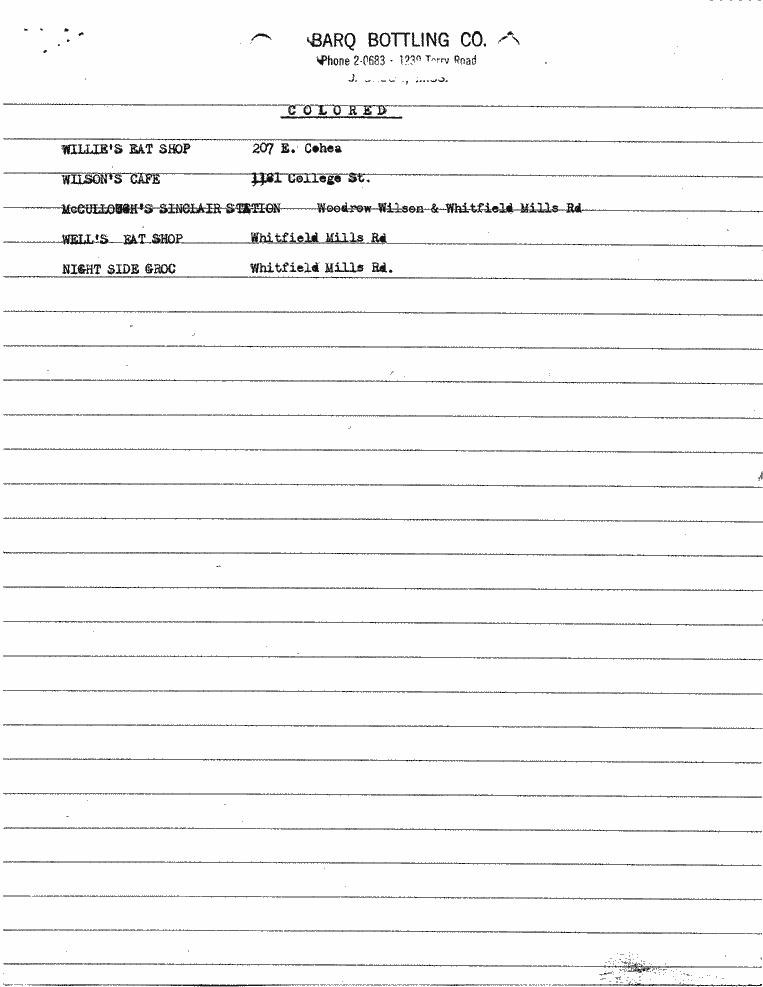 BARQ BOTTLING CO.
Phone 2-0683 - 1239 Terry Road
COLORED
WILLIE'S EAT SHOP 207 E. Cohea
WILSON'S CAFE College St.
McCULLOUGH'S SINCLAIR STATION Woodrow Wilson & Whitfield Mills Rd
WELL'S EAT SHOP Whitfield Mills Rd
NIGHT SIDE GROC Whitfield Mills Rd.